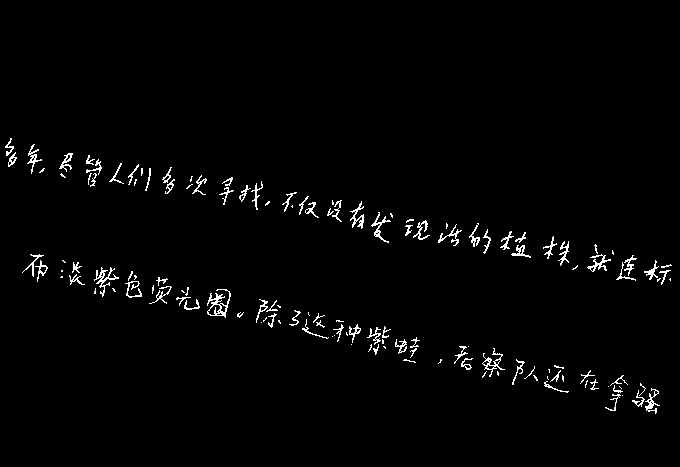 多年,尽管人们多次寻找,不仅没有发现活的植株,就连标
而淡紫色荧光圈。除了这种紫蛙,考察队还在拿骚